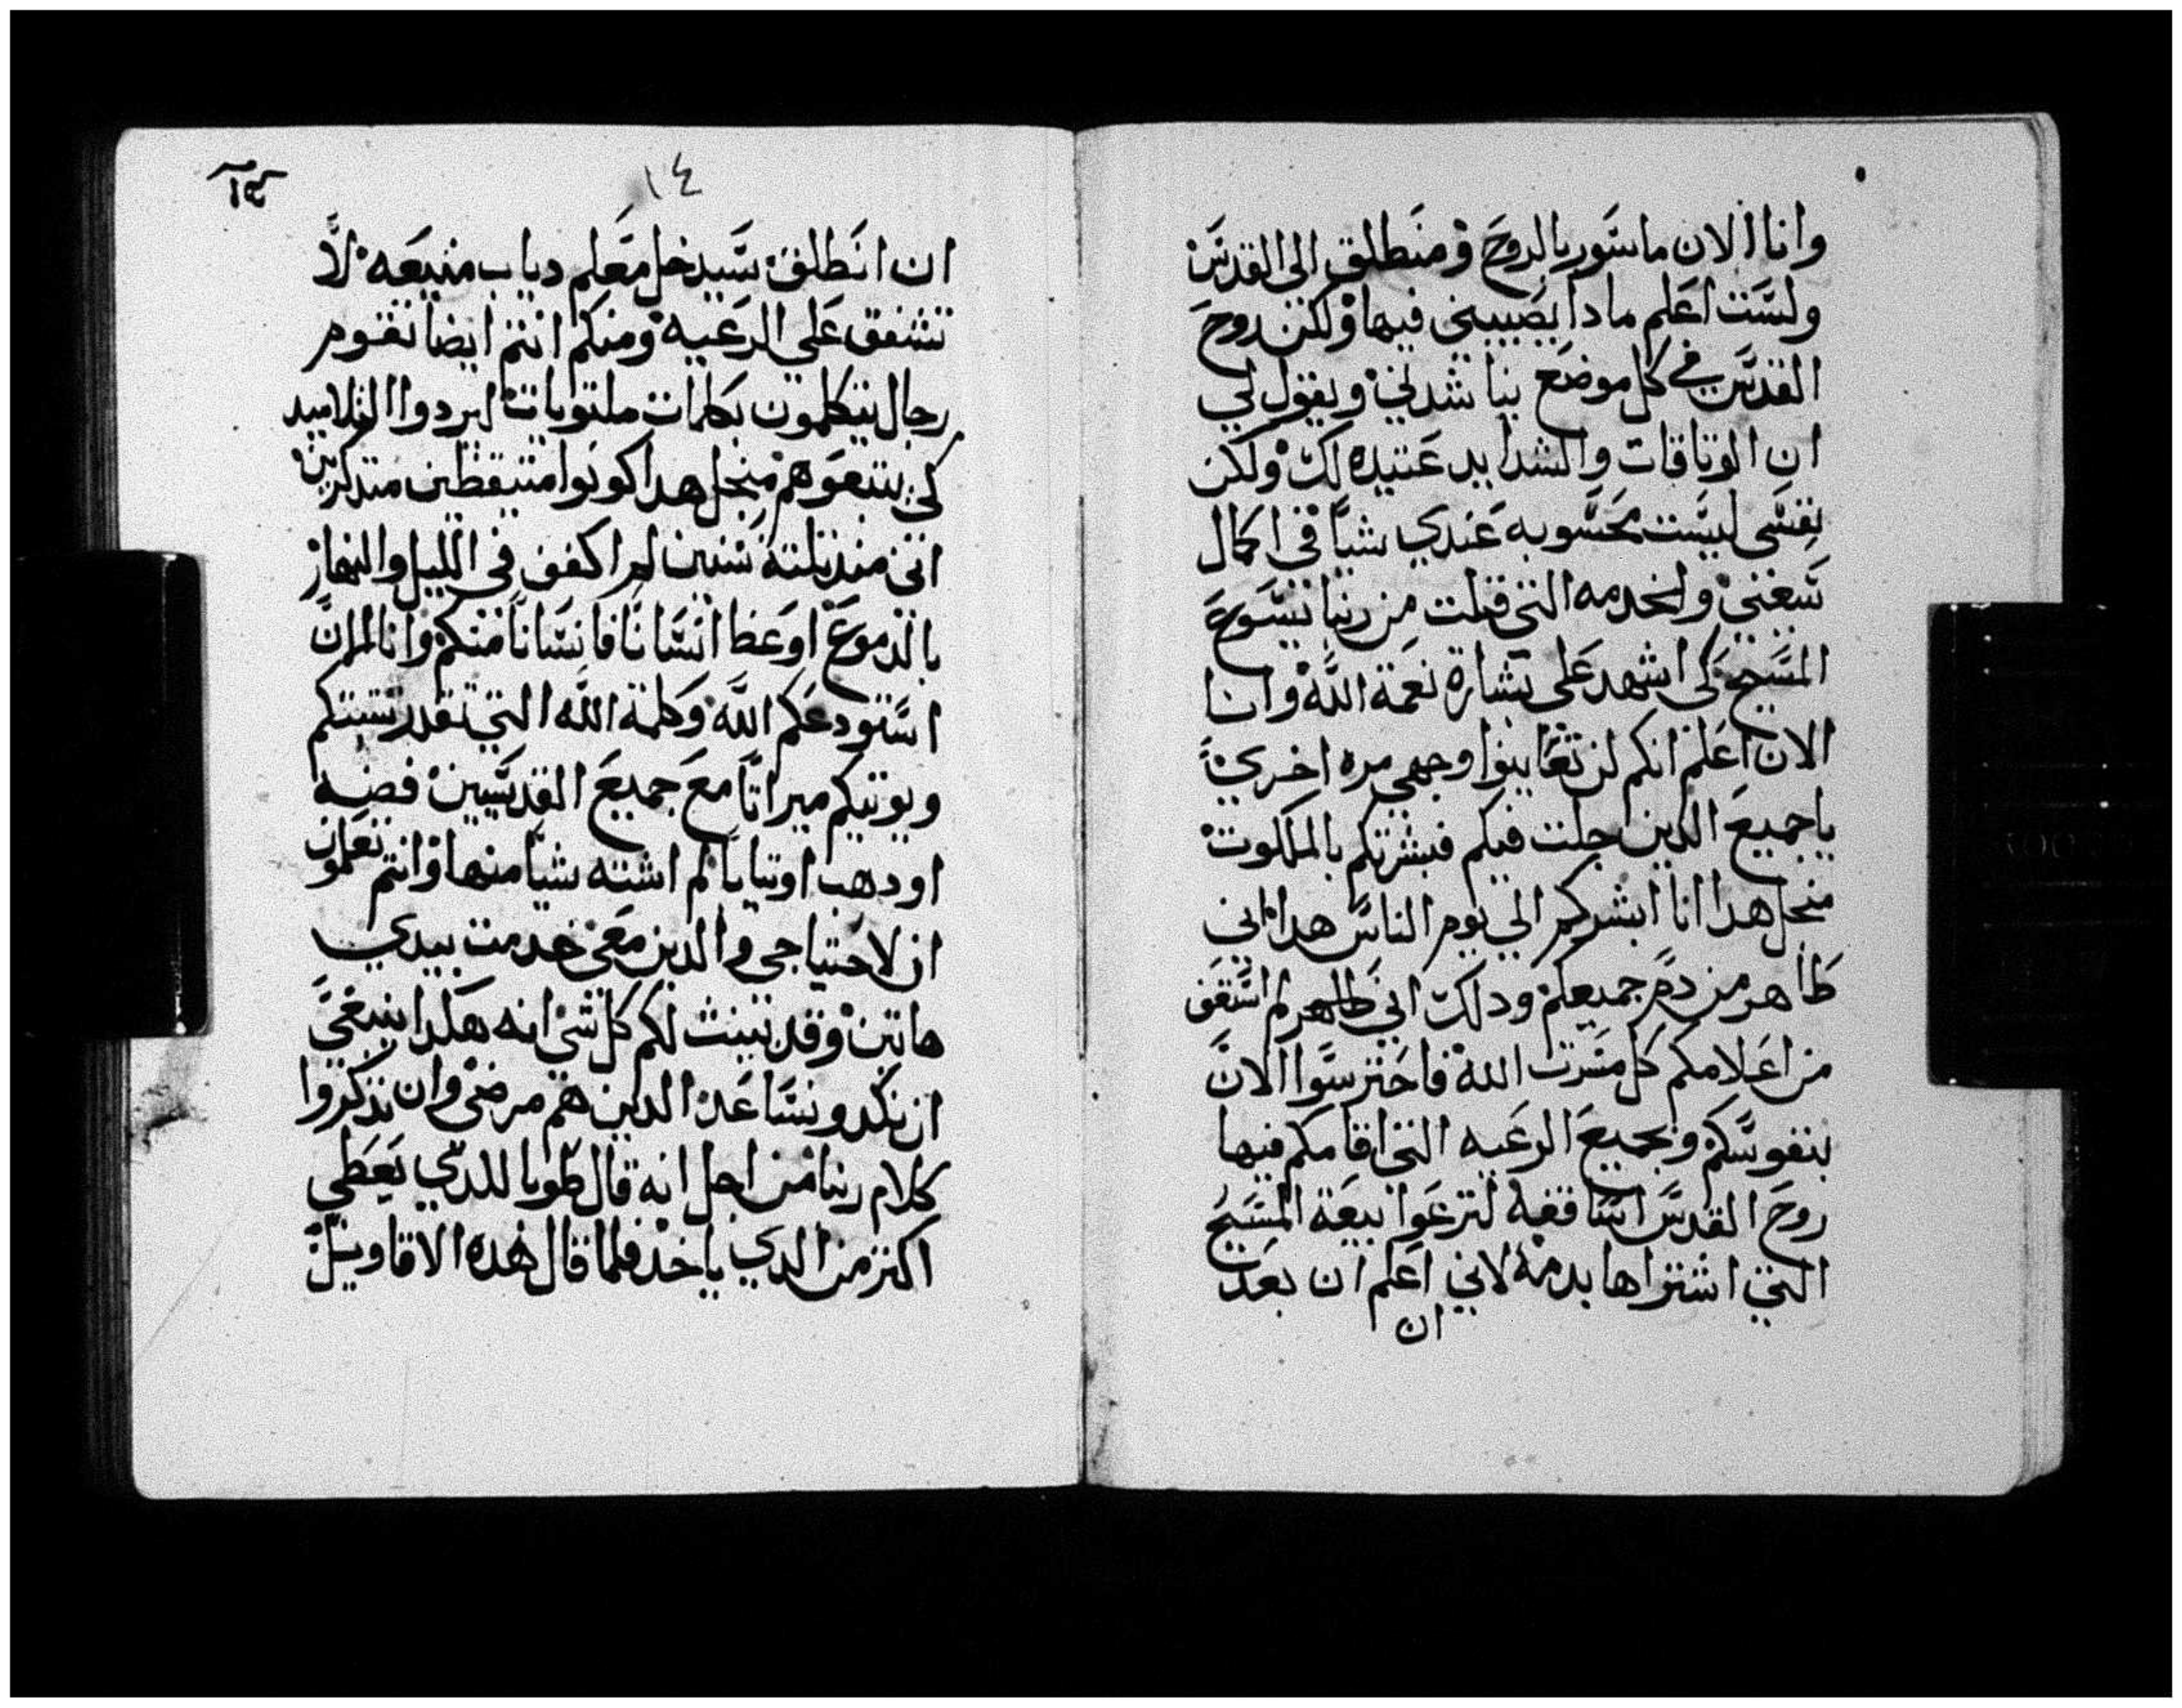 وانا الان ماسور بالروح ومنطلق الى القدس
ولست اعلم مادا يصيبني فيها ولكن روح
القدس في كل موضع يناشدني ويقول لي
ان الوتاقات والشدايد عتيده لك ولكن
نفسي ليست محسوبه عندي شيا في اكمال
سعيي والخدمه التي قبلت من ربنا يسوع
المسيح كي اشهد على بشارة نعمة الله وانا
الان اعلم انكم لن تعاينوا وجهي مره اخري
ياجميع الدين جلت فيكم فبشرتكم بالملكوت
منجل هدا انا ابشركم الي يوم الناس هدا اني
طاهر من دم جميعكم ودلك اني طاهر لم استعف
من اعلامكم كل مسرت الله فاحترسوا الان
بنفوسكم وبجميع الرعيه التي اقامكم فيها
روح القدس اساقفه لترعوا بيعة المسيح
التي اشتراها بدمه لاني اعلم ان بعد
ان
١٤
١٤
ان انطلق سيدخل معكم دياب منيعه لا
تشفق علي الرعيه ومنكم انتم ايضا تقوم
رجال يتكلمون بكلمات ملتويات ليردوا التلاميد
لكي يتبعوهم منجل هدا كونوا متيقظين متدكرين
انني مند تلتة سنين لم اكفف في الليل والنهار
بالدموع اوعظ انسانا فانسانا منكم وانا الان
استودعكم الله وكلمة الله التي تقدر تثبتكم
ويوتيكم ميراتا مع جميع القديسين فضه
او دهب او تيابا لم اشته شيا منها وانتم تعلمون
ان لاحتياجي والدين معي خدمت بيدي
هاتين وقد بينت لكم كل شي انه هكدا ينبغي
ان نكد ونساعد الدين هم مرضي وان تدكروا
كلام ربنا من اجل انه قال طوبا للدي يعطي
اكتر من الدي ياخد فلما قال هده الاقاويل